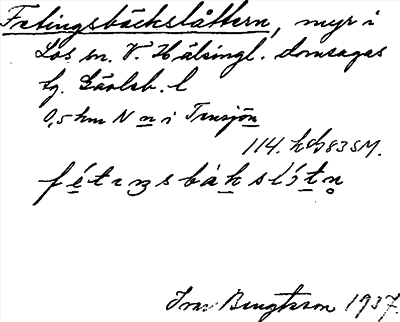 Fetingsbäckslåttern, myr i
Los sn. V. Hälsingl. domsagas
tg. Gävleb. l
0,5 km N n i Tensjön
114. h 83 SM.
fétıŋsbäkslótn̥
Ivar Bengtsson 1937.